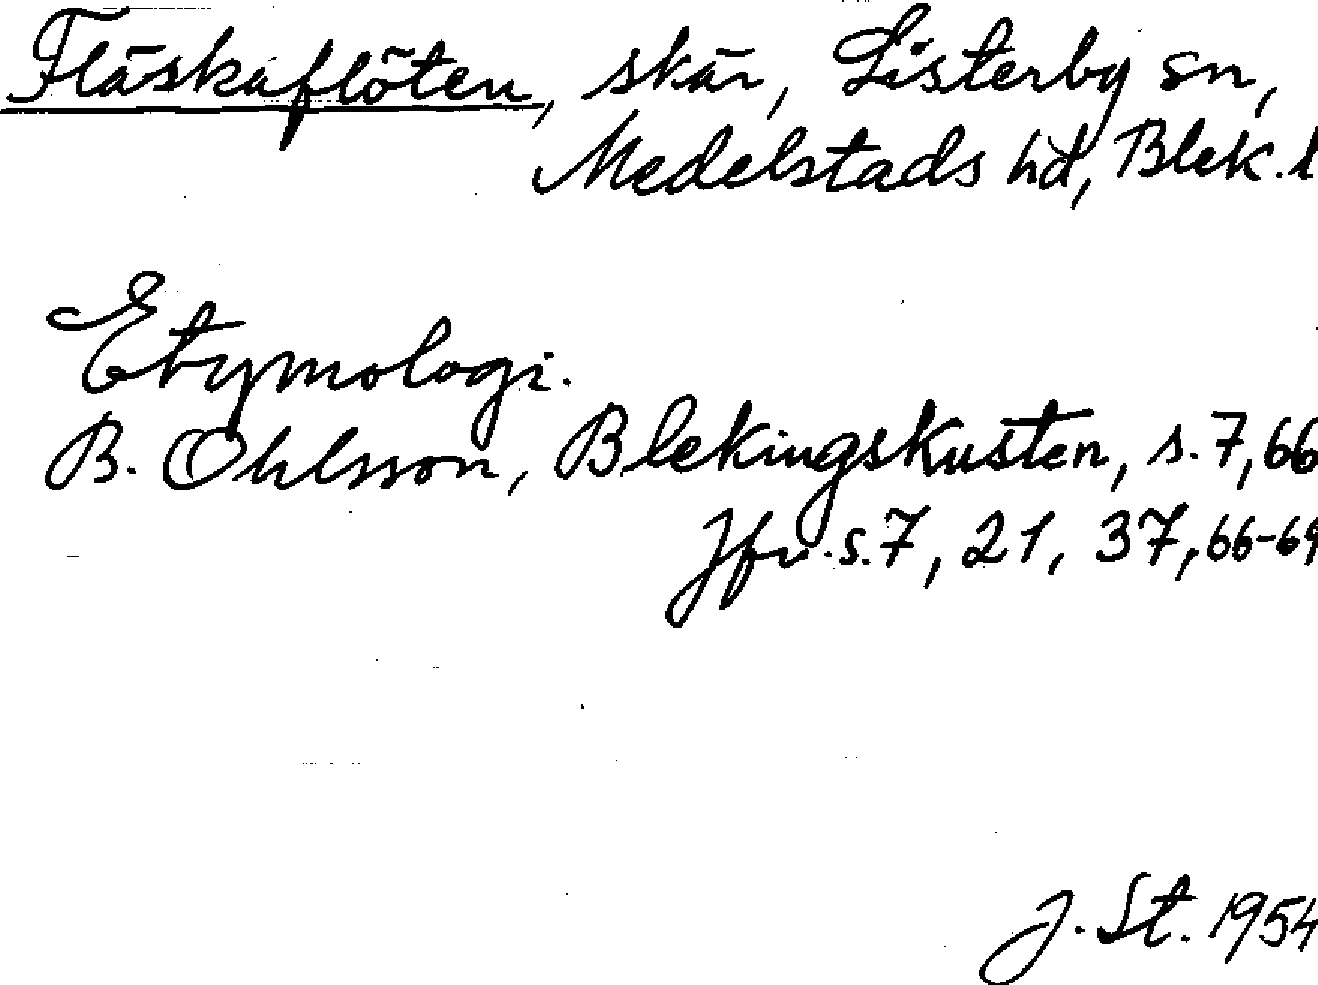 Fläskaflöten, skär, Listerby sn,
Medelstads hd, Blek. l
Etymologi.
B. Ohlsson, Blekingskusten, s. 7, 66
Jfr s. 7, 21, 37, 66-69
J. St. 1954